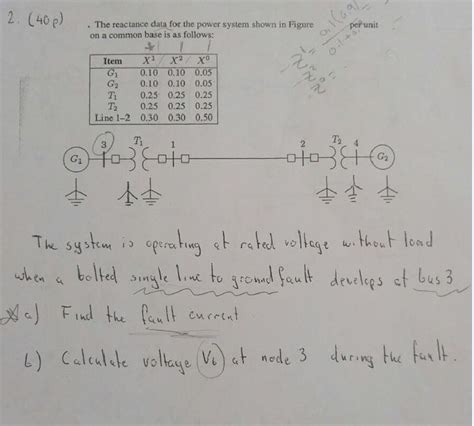 2. (40p)
. The reactance data for the power system shown in Figure per unit
on a common base is as follows:
Item X¹ X² X⁰
G₁ 0.10 0.10 0.05
G₂ 0.10 0.10 0.05
T₁ 0.25 0.25 0.25
T₂ 0.25 0.25 0.25
Line 1–2 0.30 0.30 0.50
3 T₁ 1 2 T₂ 4
G₁ G₂
The system is operating at rated voltage without load
when a bolted single line to ground fault develops at bus 3
a) Find the fault current
b) Calculate voltage (V₆) at node 3 during the fault.